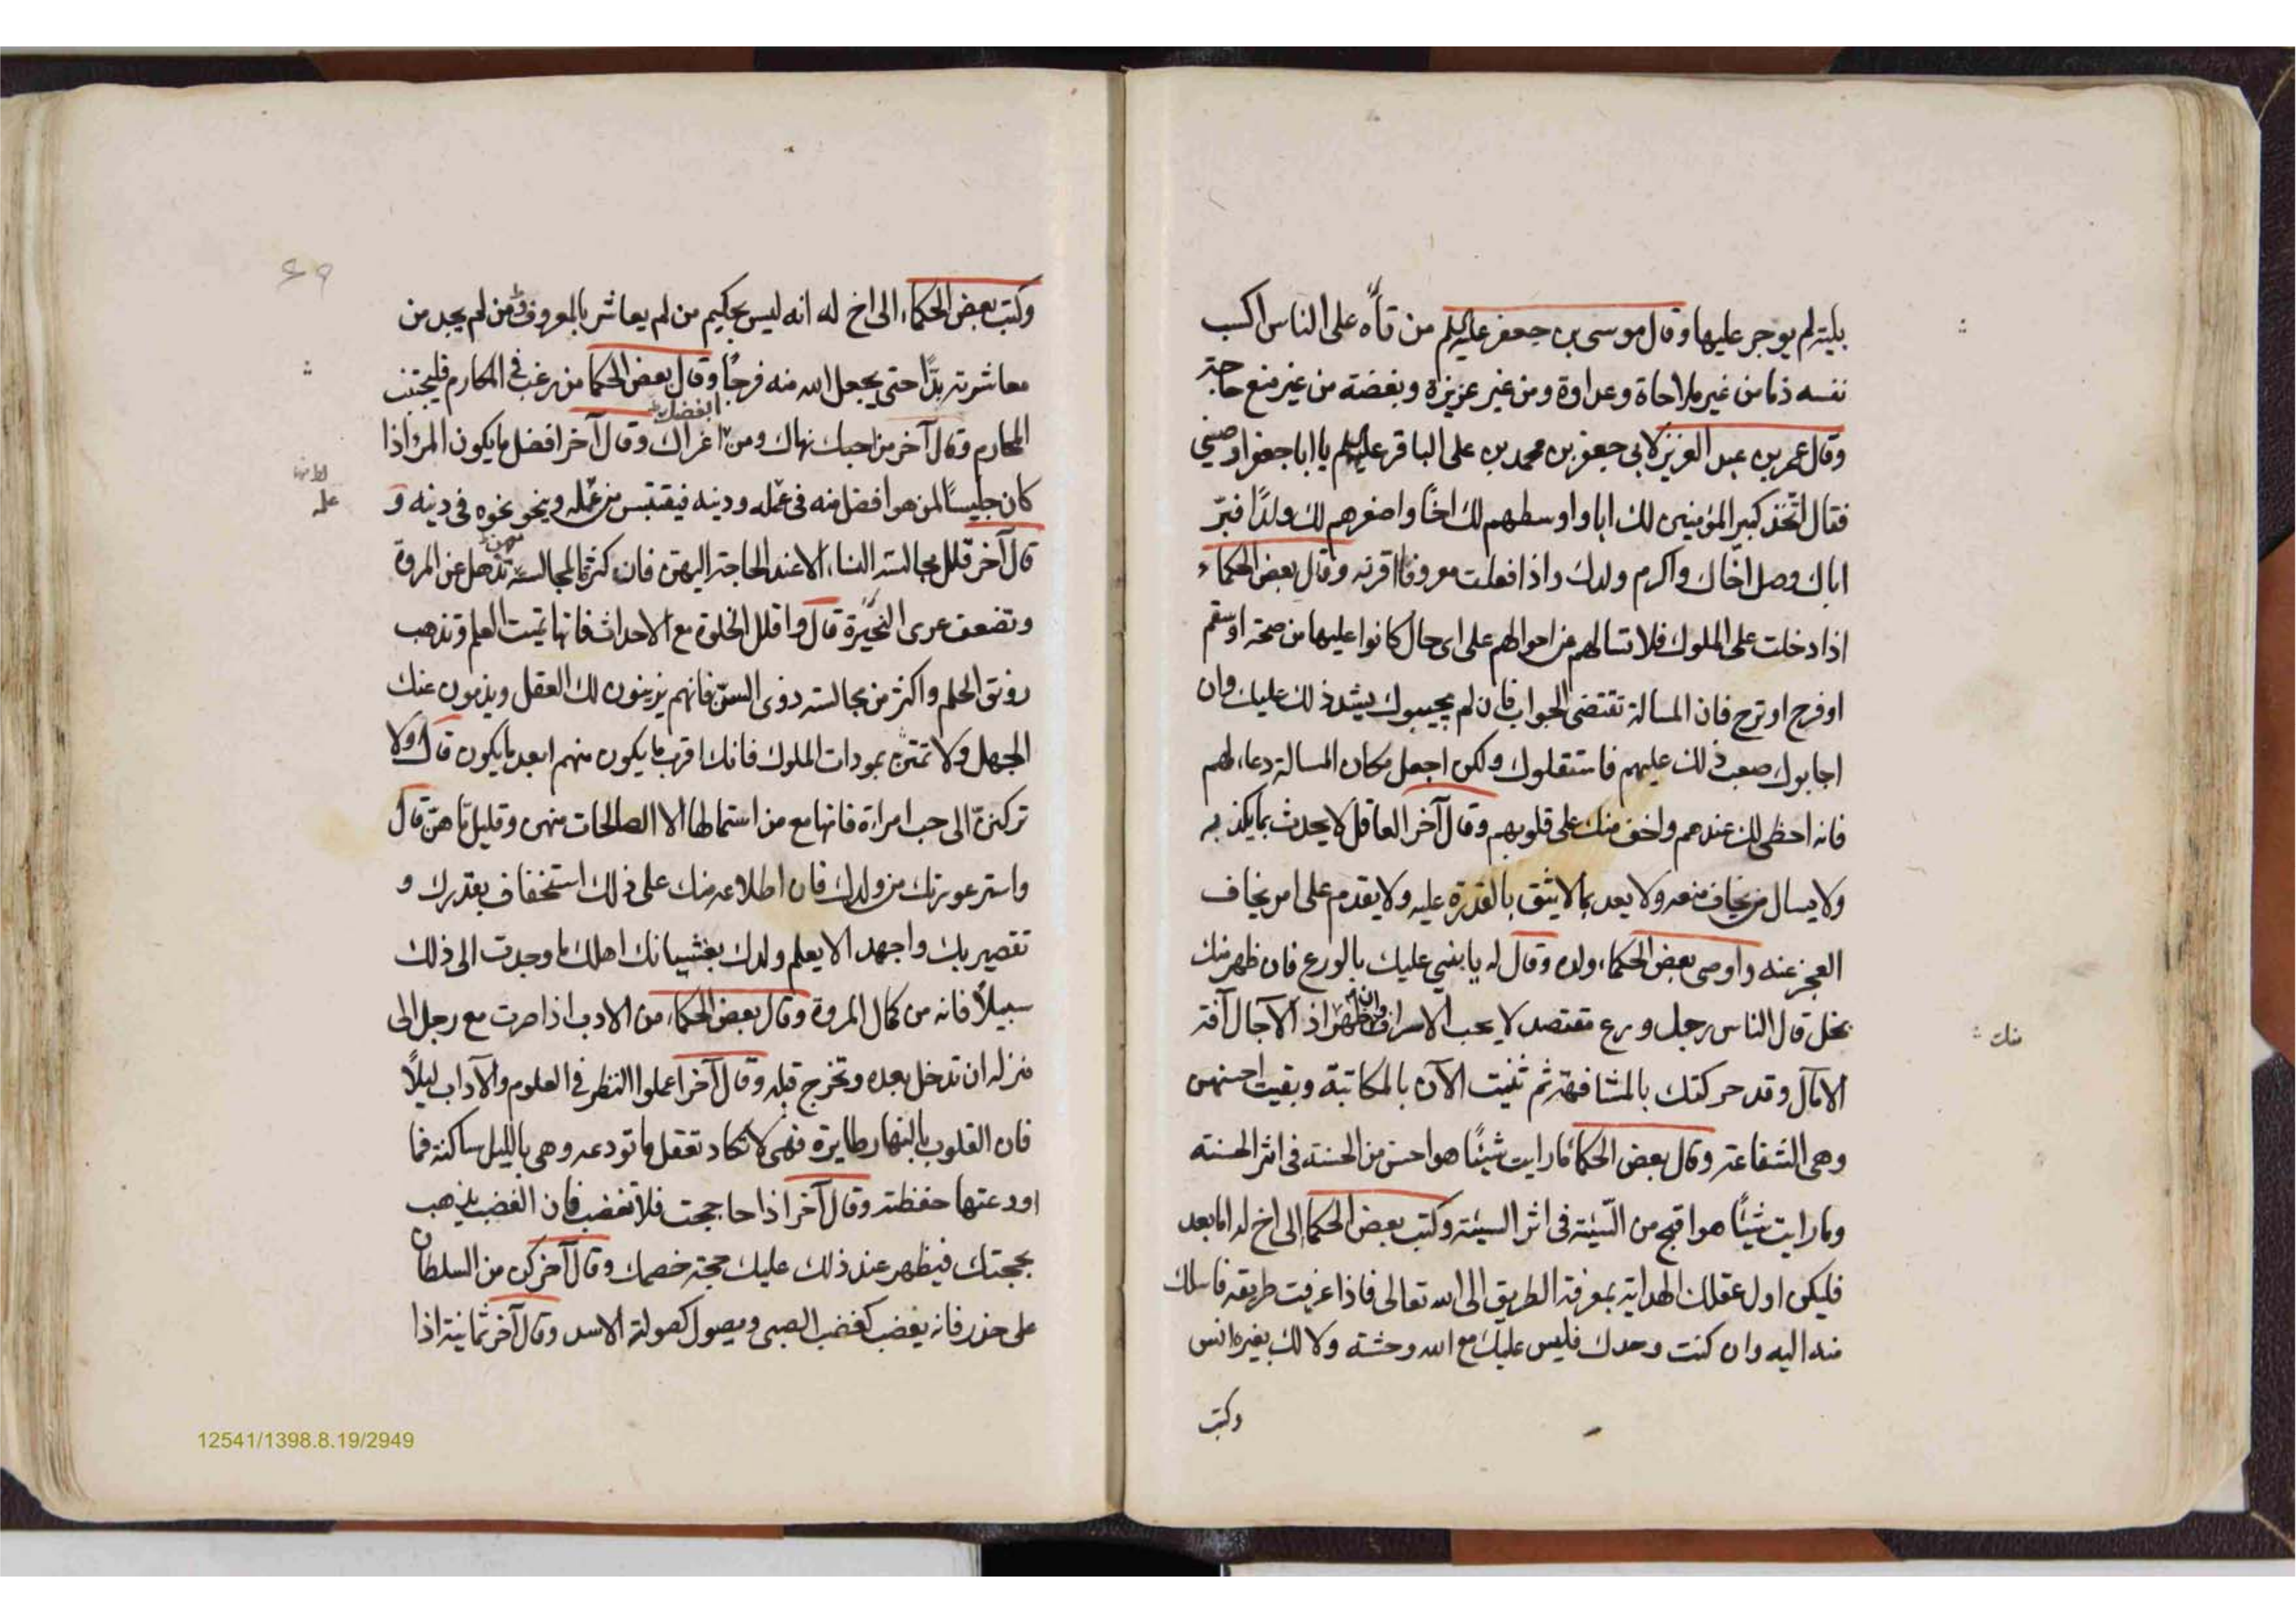 بلية لم يوجر عليها وقال موسى بن جعفر عليه السلم من تاه على الناس اكسب
نفسه ذما من غير ملاحاة وعداوة ومن غير عزيزة وبغضة من غير منع حاجة
وقال عمر بن عبد العزيز لابي جعفر بن محمد بن على الباقر عليه السلم يا ابا جعفر اوصيني
فقال اتخذ كبير المؤمنين لك ابا واوسطهم لك اخًا واصغرهم لك ولدًا فبرّ
اباك وصل اخاك واكرم ولدك واذا فعلت معروفا اقرنه وقال بعض الحكماء
اذا دخلت على الملوك فلا تسالهم من احوالهم على اى حال كانوا عليها من صحة او سقم
او فرح او ترح فان المسالة تقتضى الجواب فان لم يجيبوك يشتد ذلك عليك وان
اجابوك صعب ذلك عليهم فاستثقلوك ولكن اجعل مكان المسالة دعاء لهم
فانه احظى لك عندهم واخف منك على قلوبهم وقال آخر العاقل لا يحدث بما يكذب به
ولا يسال من يخاف منعه ولا يعد بما لا يثق بالقدرة عليه ولا يقدم على امر يخاف
العجز عنه واوصى بعض الحكماء ولده وقال له يا بني عليك بالورع فان ظهر منك
بخل قال الناس رجل ورع مقتصد لا يحب الاسراف وان ظهر اذ الآجال آفة
الآمال وقد حركتك بالمشافهة ثم ثنيت الآن بالمكاتبة وبقيت احسنهن
وهى الشفاعة وقال بعض الحكماء ما رايت شيئًا هو احسن من الحسنة فى اثر الحسنة
وما رايت شيئًا هو اقبح من السّيئة فى اثر السيئة وكتب بعض الحكما الى اخ له اما بعد
فليكن اول عقلك الهداية بمعرفة الطريق الى الله تعالى فاذا عرفت طريقه فاسلك
منه اليه وان كنت وحدك فليس عليك مع الله وحشة ولا لك بغيره انس
وكتب
منك
وكتب بعض الحكماء الى اخ له انه ليس بحكيم من لم يعاشر بالمعروف من لم يجد من
معاشرته بدًّا حتى يجعل الله منه فرجًا وقال بعض الحكما من رغب فى المكارم فليجتنب
المحارم وقال آخر من احبك نهاك ومن ابغضك اغراك وقال آخر افضل ما يكون المرو اذا
كان جليسًا لمن هو افضل منه فى عمله ودينه فيقتبس من عمله وينحو نحوه فى دينه و
علمه
قال آخر قلل مجالسة النساء الا عند الحاجة اليهن فان كثرة المجالسة منهن تذهل عن المروة
وتضعف عرى النحيزة قال واقلل الخلوة مع الاحداث فانها تميت العلم وتذهب
رونق الحلم واكثر من مجالسة ذوى السنّ فانهم يزينون لك العقل ويذبون عنك
الجهل ولا تمترنّ بمودات الملوك فانك اقرب ما يكون منهم ابعد ما يكون قال ولا
تركننّ الى حب امراة فانها مع من استمالها الا الصالحات منهن وقليل ما هنّ قال
واستر عورتك من ولدك فان اطلاعه منك على ذلك استخفاف بقدرك و
تقصير بك واجهد الا يعلم ولدك بغشيانك اهلك ما وجدت الى ذلك
سبيلًا فانه من كمال المروة وقال بعض الحكماء من الادب اذا صرت مع رجل الى
منزله ان تدخل بعده وتخرج قبله وقال آخر اعملوا النظر فى العلوم والآداب ليلًا
فان القلوب بالنهار طايرة فهى لا تكاد تعقل ما تودعه وهى بالليل ساكنة فما
اودعتها حفظته وقال آخر اذا حاججت فلا تغضب فان الغضب يذهب
بحجتك فيظهر عند ذلك عليك حجة خصمك وقال آخر كن من السلطان
على حذر فانه يغضب كغضب الصبى ويصول كصولة الاسد وقال آخر ثمانية اذا
12541/1398.8.19/2949